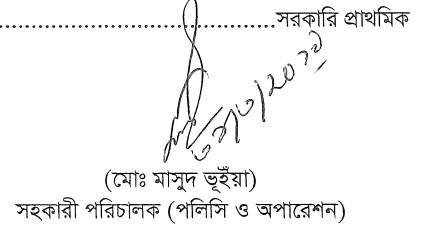 .................................................সরকারি প্রাথমিক
(মোঃ মাসুদ ভূইঁয়া)
সহকারী পরিচালক (পলিসি ও অপারেশন)